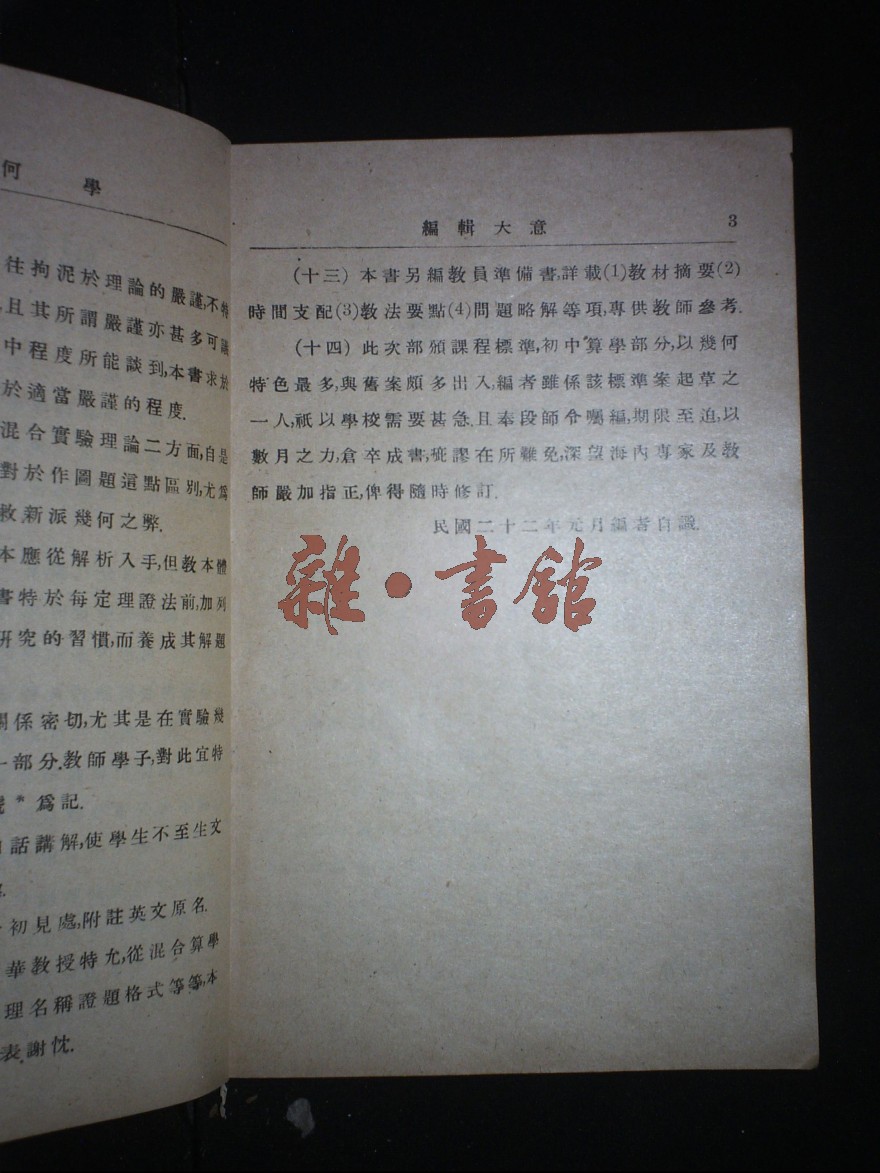 何學
往拘泥於理論的嚴謹,不特
且其所謂嚴謹亦甚多可議
中程度所能談到,本書求於
於適當嚴謹的程度.
混合實驗理論二方面,自是
對於作圖題這點區別,尤爲
救新派幾何之弊.
本應從解析入手,但教本體
書特於每定理證法前,加列
研究的習慣,而養成其解題
關係密切,尤其是在實驗幾
部分.教師學子,對此宜特
號*爲記.
話講解,使學生不至生文
初見處,附註英文原名.
華教授特允,從混合算學
理名稱證題格式等等,本
表謝忱.
編輯大意 3
(十三) 本書另編教員準備書,詳載(1)教材摘要(2)
時間支配(3)教法要點(4)問題略解等項,專供教師參考.
(十四) 此次部頒課程標準,初中算學部分,以幾何
特色最多,與舊案頗多出入,編者雖係該標準案起草之
一人,祇以學校需要甚急.且奉段師令囑編,期限至迫,以
數月之力,倉卒成書,疵謬在所難免,深望海內專家及教
師嚴加指正,俾得隨時修訂.
民國二十二年元月編者自識.
雜·書館